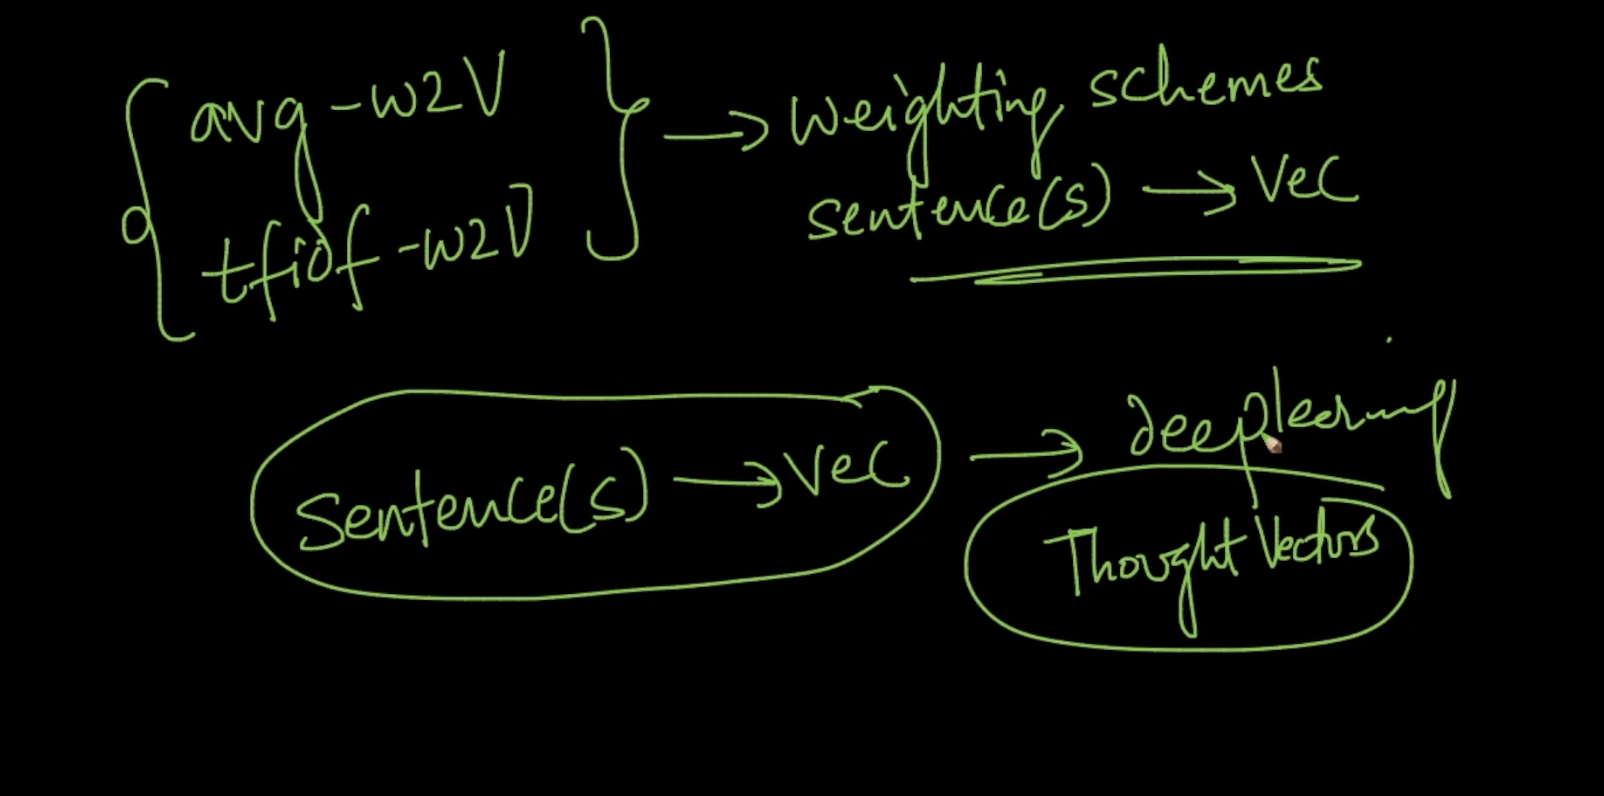 avg-w2V
tfidf-w2V
→ weighting schemes
sentence(s) → Vec
Sentence(s) → Vec → deeplearning
Thought Vectors